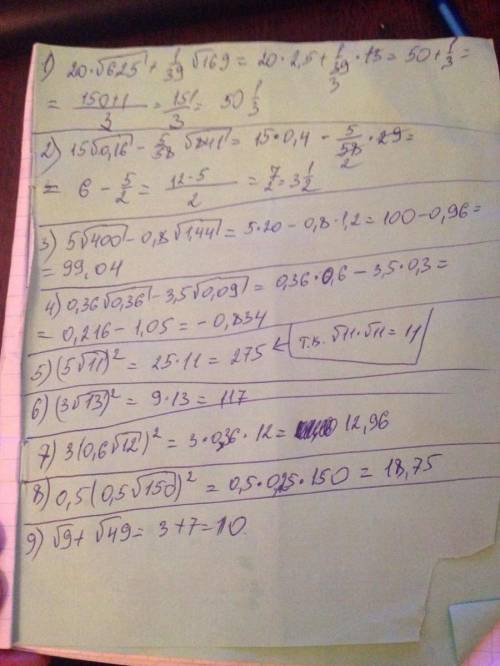 1) 20·√625 + 1/39 √169 = 20·2,5 + 1/39 ·13 = 50 + 1/3 =
3
= 150+1/3 = 151/3 = 50 1/3
2) 15√0,16 - 5/58 √841 = 15·0,4 - 5/58 · 29 =
2
= 6 - 5/2 = 12-5/2 = 7/2 = 3 1/2
3) 5√400 - 0,8√1,44 = 5·20 - 0,8·1,2 = 100 - 0,96 =
= 99,04
4) 0,36√0,36 - 3,5√0,09 = 0,36·0,6 - 3,5·0,3 =
= 0,216 - 1,05 = -0,834
5) (5√11)² = 25·11 = 275 ← т.к. √11·√11 = 11
6) (3√13)² = 9·13 = 117
7) 3(0,6√12)² = 3·0,36·12 = 12,96
8) 0,5(0,5√150)² = 0,5·0,25·150 = 18,75
9) √9 + √49 = 3+7 = 10